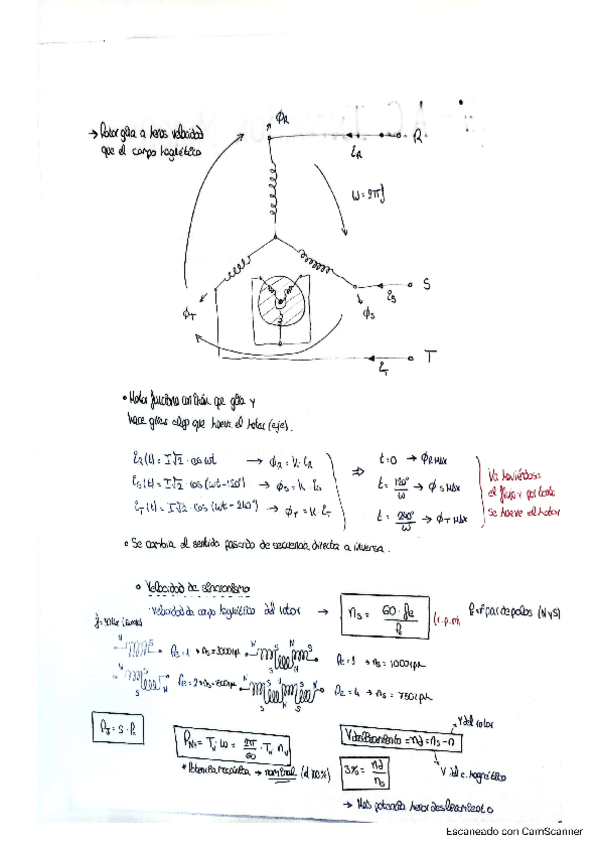 ϕR
→ Rotor gira a menos velocidad
que el campo magnético
iR
R
ω = 2πf
S
iS
ϕS
ϕT
T
iT
• Motor funciona con imán que gira y
hace girar algo que mueve el motor (eje).
iR(t) = I√2 · cos ωt → ϕR = K · iR
iS(t) = I√2 · cos (ωt - 120°) → ϕS = K iS
iT(t) = I√2 · cos (ωt - 240°) → ϕT = K iT
⇒
t=0 → ϕR MAX
t = 120°/ω → ϕS MAX
t = 240°/ω → ϕT MAX
Va moviéndose
el flujo y por tanto
se mueve el motor
• Se cambia el sentido pasando de secuencia directa a inversa.
• Velocidad de sincronismo
Velocidad de campo magnético del rotor →
nS = 60 · fe / Pe
(r.p.m)
P = nº par de polos (N y S)
f = 50 Hz
N S
Pe = 1 → nS = 3000 rpm
N S N S
Pe = 3 → nS = 1000 rpm
Pe = 2 → nS = 1500 rpm
Pe = 4 → nS = 750 rpm
PJ = S · Pe
PN = TN · ω = 2π/60 · TN nN
* Potencia mecánica → nominal (al 100%)
V deslizamiento = nd = nS - n
V del rotor
V del c. magnético
S% = nd / nS
→ Más potencia menor deslizamiento
Escaneado con CamScanner